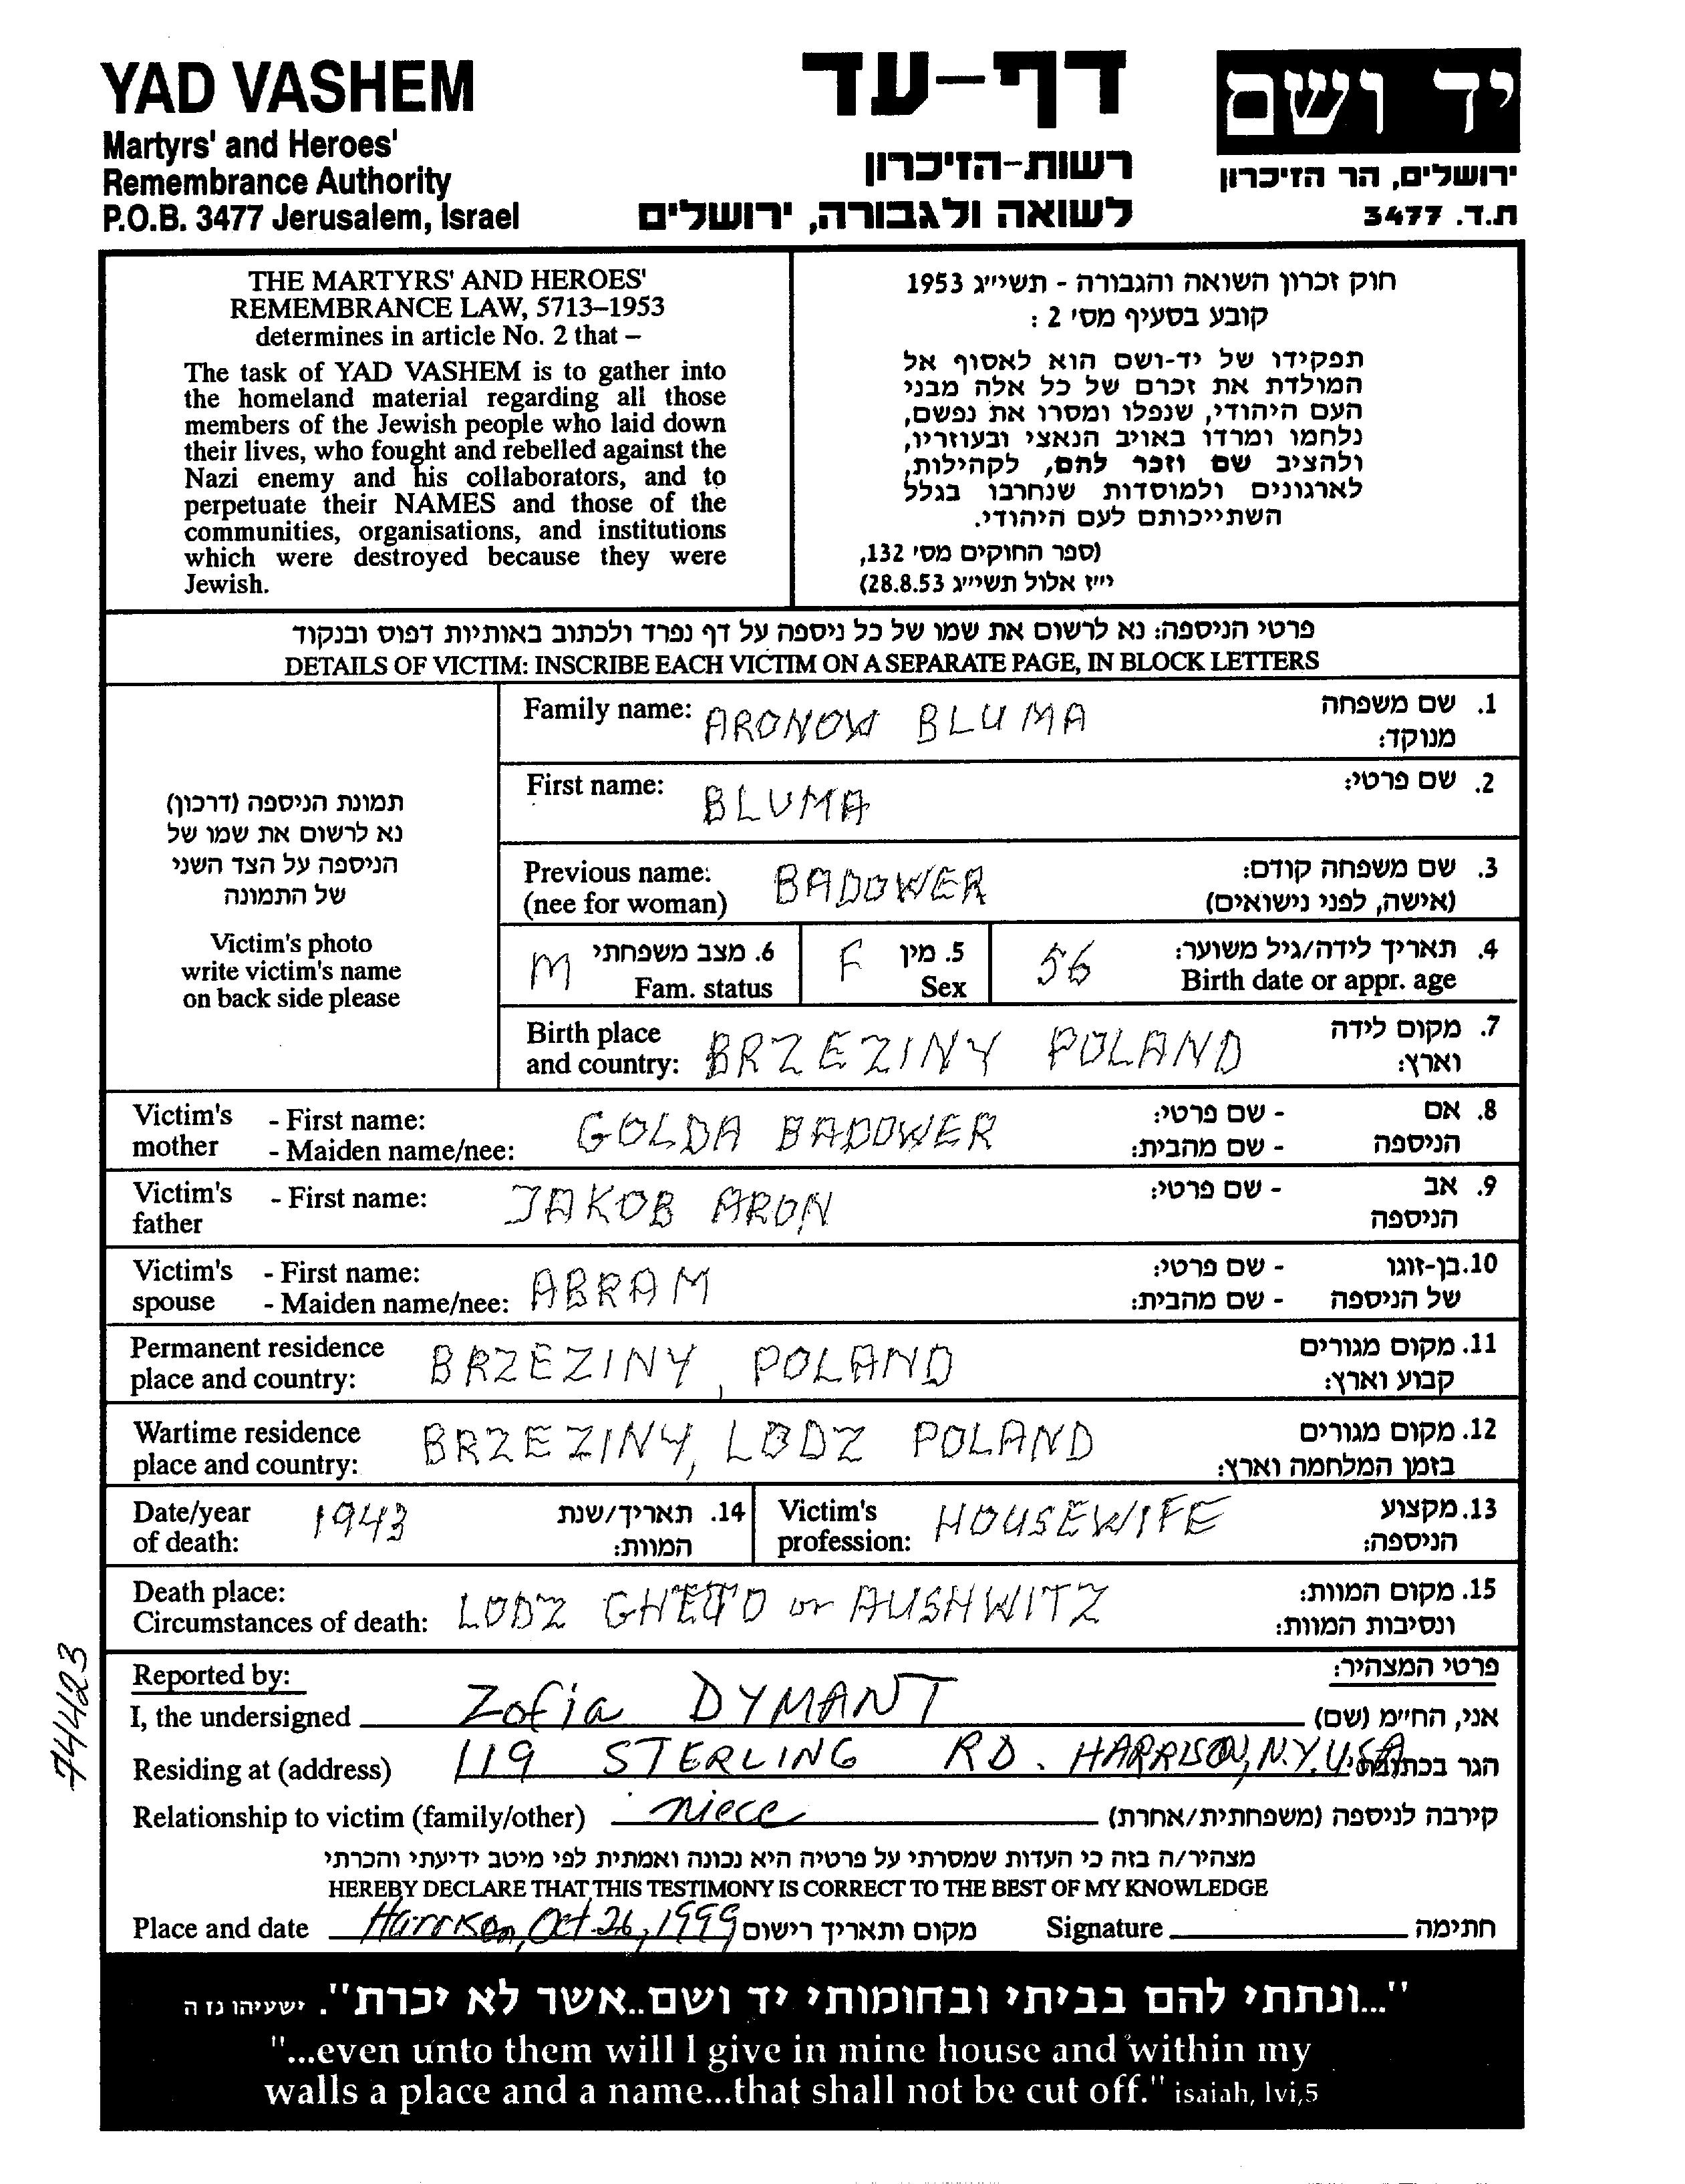 YAD VASHEM
Martyrs' and Heroes'
Remembrance Authority
P.O.B. 3477 Jerusalem, Israel
דף-עד
רשות-הזיכרון
לשואה ולגבורה, ירושלים
יד ושם
ירושלים, הר הזיכרון
ת.ד. 3477
THE MARTYRS' AND HEROES'
REMEMBRANCE LAW, 5713–1953
determines in article No. 2 that –
The task of YAD VASHEM is to gather into
the homeland material regarding all those
members of the Jewish people who laid down
their lives, who fought and rebelled against the
Nazi enemy and his collaborators, and to
perpetuate their NAMES and those of the
communities, organisations, and institutions
which were destroyed because they were
Jewish.
חוק זכרון השואה והגבורה - תשי״ג 1953
קובע בסעיף מס׳ 2 :
תפקידו של יד-ושם הוא לאסוף אל
המולדת את זכרם של כל אלה מבני
העם היהודי, שנפלו ומסרו את נפשם,
נלחמו ומרדו באויב הנאצי ובעוזריו,
ולהציב שם וזכר להם, לקהילות,
לארגונים ולמוסדות שנחרבו בגלל
השתייכותם לעם היהודי.
(ספר החוקים מס׳ 132,
י״ז אלול תשי״ג 28.8.53)
פרטי הניספה: נא לרשום את שמו של כל ניספה על דף נפרד ולכתוב באותיות דפוס ובנקוד
DETAILS OF VICTIM: INSCRIBE EACH VICTIM ON A SEPARATE PAGE, IN BLOCK LETTERS
תמונת הניספה (דרכון)
נא לרשום את שמו של
הניספה על הצד השני
של התמונה
Victim's photo
write victim's name
on back side please
Family name: ARONOW BLUMA 1. שם משפחה
מנוקד:
First name: BLUMA 2. שם פרטי:
Previous name: BADOWER 3. שם משפחה קודם:
(nee for woman) (אישה, לפני נישואים)
M 6. מצב משפחתי F 5. מין 56 4. תאריך לידה/גיל משוער:
Fam. status Sex Birth date or appr. age
Birth place BRZEZINY POLAND 7. מקום לידה
and country: וארץ:
Victim's - First name: GOLDA BADOWER - שם פרטי: 8. אם
mother - Maiden name/nee: - שם מהבית: הניספה
Victim's - First name: JAKOB ARON - שם פרטי: 9. אב
father הניספה
Victim's - First name: ABRAM - שם פרטי: 10. בן-זוגו
spouse - Maiden name/nee: - שם מהבית: של הניספה
Permanent residence BRZEZINY, POLAND 11. מקום מגורים
place and country: קבוע וארץ:
Wartime residence BRZEZINY, LODZ POLAND 12. מקום מגורים
place and country: בזמן המלחמה וארץ:
Date/year 1943 14. תאריך/שנת Victim's HOUSEWIFE 13. מקצוע
of death: המוות: profession: הניספה:
Death place: LODZ GHETTO or AUSHWITZ 15. מקום המוות:
Circumstances of death: ונסיבות המוות:
74423
Reported by: פרטי המצהיר:
I, the undersigned Zofia DYMANT אני, החי״מ (שם)
Residing at (address) 119 STERLING RD. HARRISON, N.Y. USA הגר בכתובת:
Relationship to victim (family/other) niece קירבה לניספה (משפחתית/אחרת)
מצהיר/ה בזה כי העדות שמסרתי על פרטיה היא נכונה ואמתית לפי מיטב ידיעתי והכרתי
HEREBY DECLARE THAT THIS TESTIMONY IS CORRECT TO THE BEST OF MY KNOWLEDGE
Place and date Harrison, Oct. 26, 1999 מקום ותאריך רישום Signature חתימה
"...ונתתי להם בביתי ובחומותי יד ושם..אשר לא יכרת". ישעיהו נז ה
"...even unto them will I give in mine house and within my
walls a place and a name...that shall not be cut off." isaiah, lvi,5